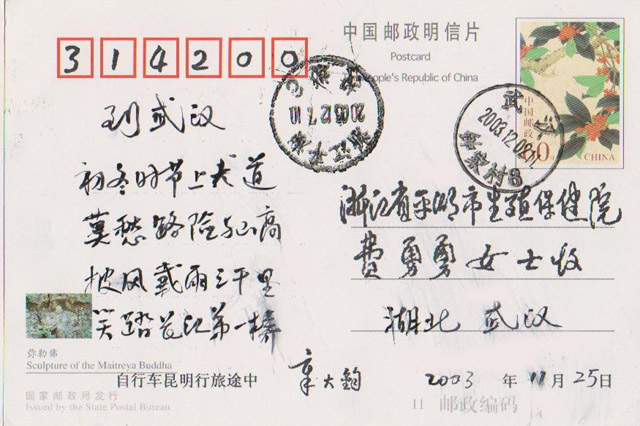 中国邮政明信片
Postcard
People's Republic of China
314200
中国邮政
80分
CHINA
武汉
2003.12.02
到武汉
初冬时节上大道
莫愁路险与山高
披风戴雨三千里
笑踏长江第一桥
浙江省平湖市生殖保健院
费勇勇女士收
湖北 武汉
弥勒佛
Sculpture of the Maitreya Buddha
自行车昆明行旅途中
章大钧
2003 年 11 月 25 日
国家邮政局发行
Issued by the State Postal Bureau
11 邮政编码